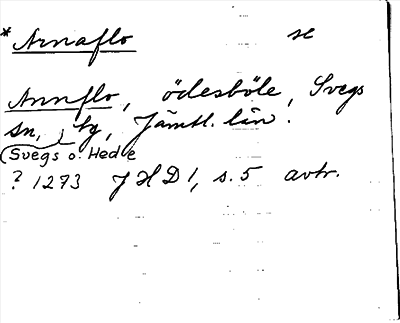 * Arnaflo se
Annflo, ödesböle, Svegs
sn, by, Jämtl. län.
(Svegs o. Hede
? 1273 JHD 1, s. 5 avtr.